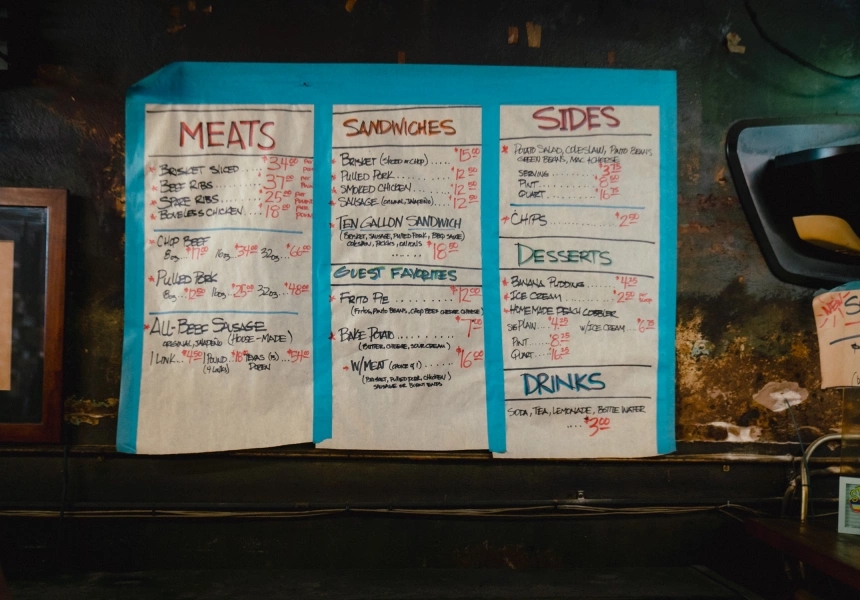 MEATS
BRISKET SLICED $34.00 per pound
BEEF RIBS 37.00 per pound
SPARE RIBS $25.00 per pound
BONELESS CHICKEN 18.00 per pound
CHOP BEEF
8oz. $17.00 16oz. $34.00 32oz. $66.00
PULLED PORK
8oz. 16oz. $25.00 32oz. $48.00
ALL-BEEF SAUSAGE
ORIGINAL, JALAPEÑO (HOUSE-MADE)
1 LINK.. 1 POUND.. TEXAS
(4 LINKS) DOZEN
SANDWICHES
BRISKET (SLICED or CHOP) .... $15.00
PULLED PORK ....... $12.00
SMOKED CHICKEN ..... $12.00
SAUSAGE (ORIGINAL, JALAPEÑO) $12.00
TEN GALLON SANDWICH
(BRISKET, SAUSAGE, PULLED PORK, BBQ SAUCE)
COLESLAW, PICKLES, ONIONS
...... $18.00
GUEST FAVORITES
FRITO PIE ........ $12.00
(FRITOS, PINTO BEANS, CHOP BEEF, CHEESE)
BAKE POTATO ........ $7.00
(BUTTER, CHEESE, SOUR CREAM)
W/MEAT (CHOICE of 1) ...... $16.00
(BRISKET, PULLED PORK, CHICKEN)
SAUSAGE OR
SIDES
POTATO SALAD, COLESLAW, PINTO BEANS
GREEN BEANS, MAC + CHEESE
SERVING ........
PINT ........
QUART ........
CHIPS ........ $2.00
DESSERTS
BANANA PUDDING .... $4.25
ICE CREAM ........ $2.00 per scoop
HOMEMADE PEACH COBBLER
SG PLAIN .... $4.25 W/ICE CREAM
PINT ..... 8.25
QUART ....
DRINKS
SODA, TEA, LEMONADE, BOTTLE WATER
.... $3.00